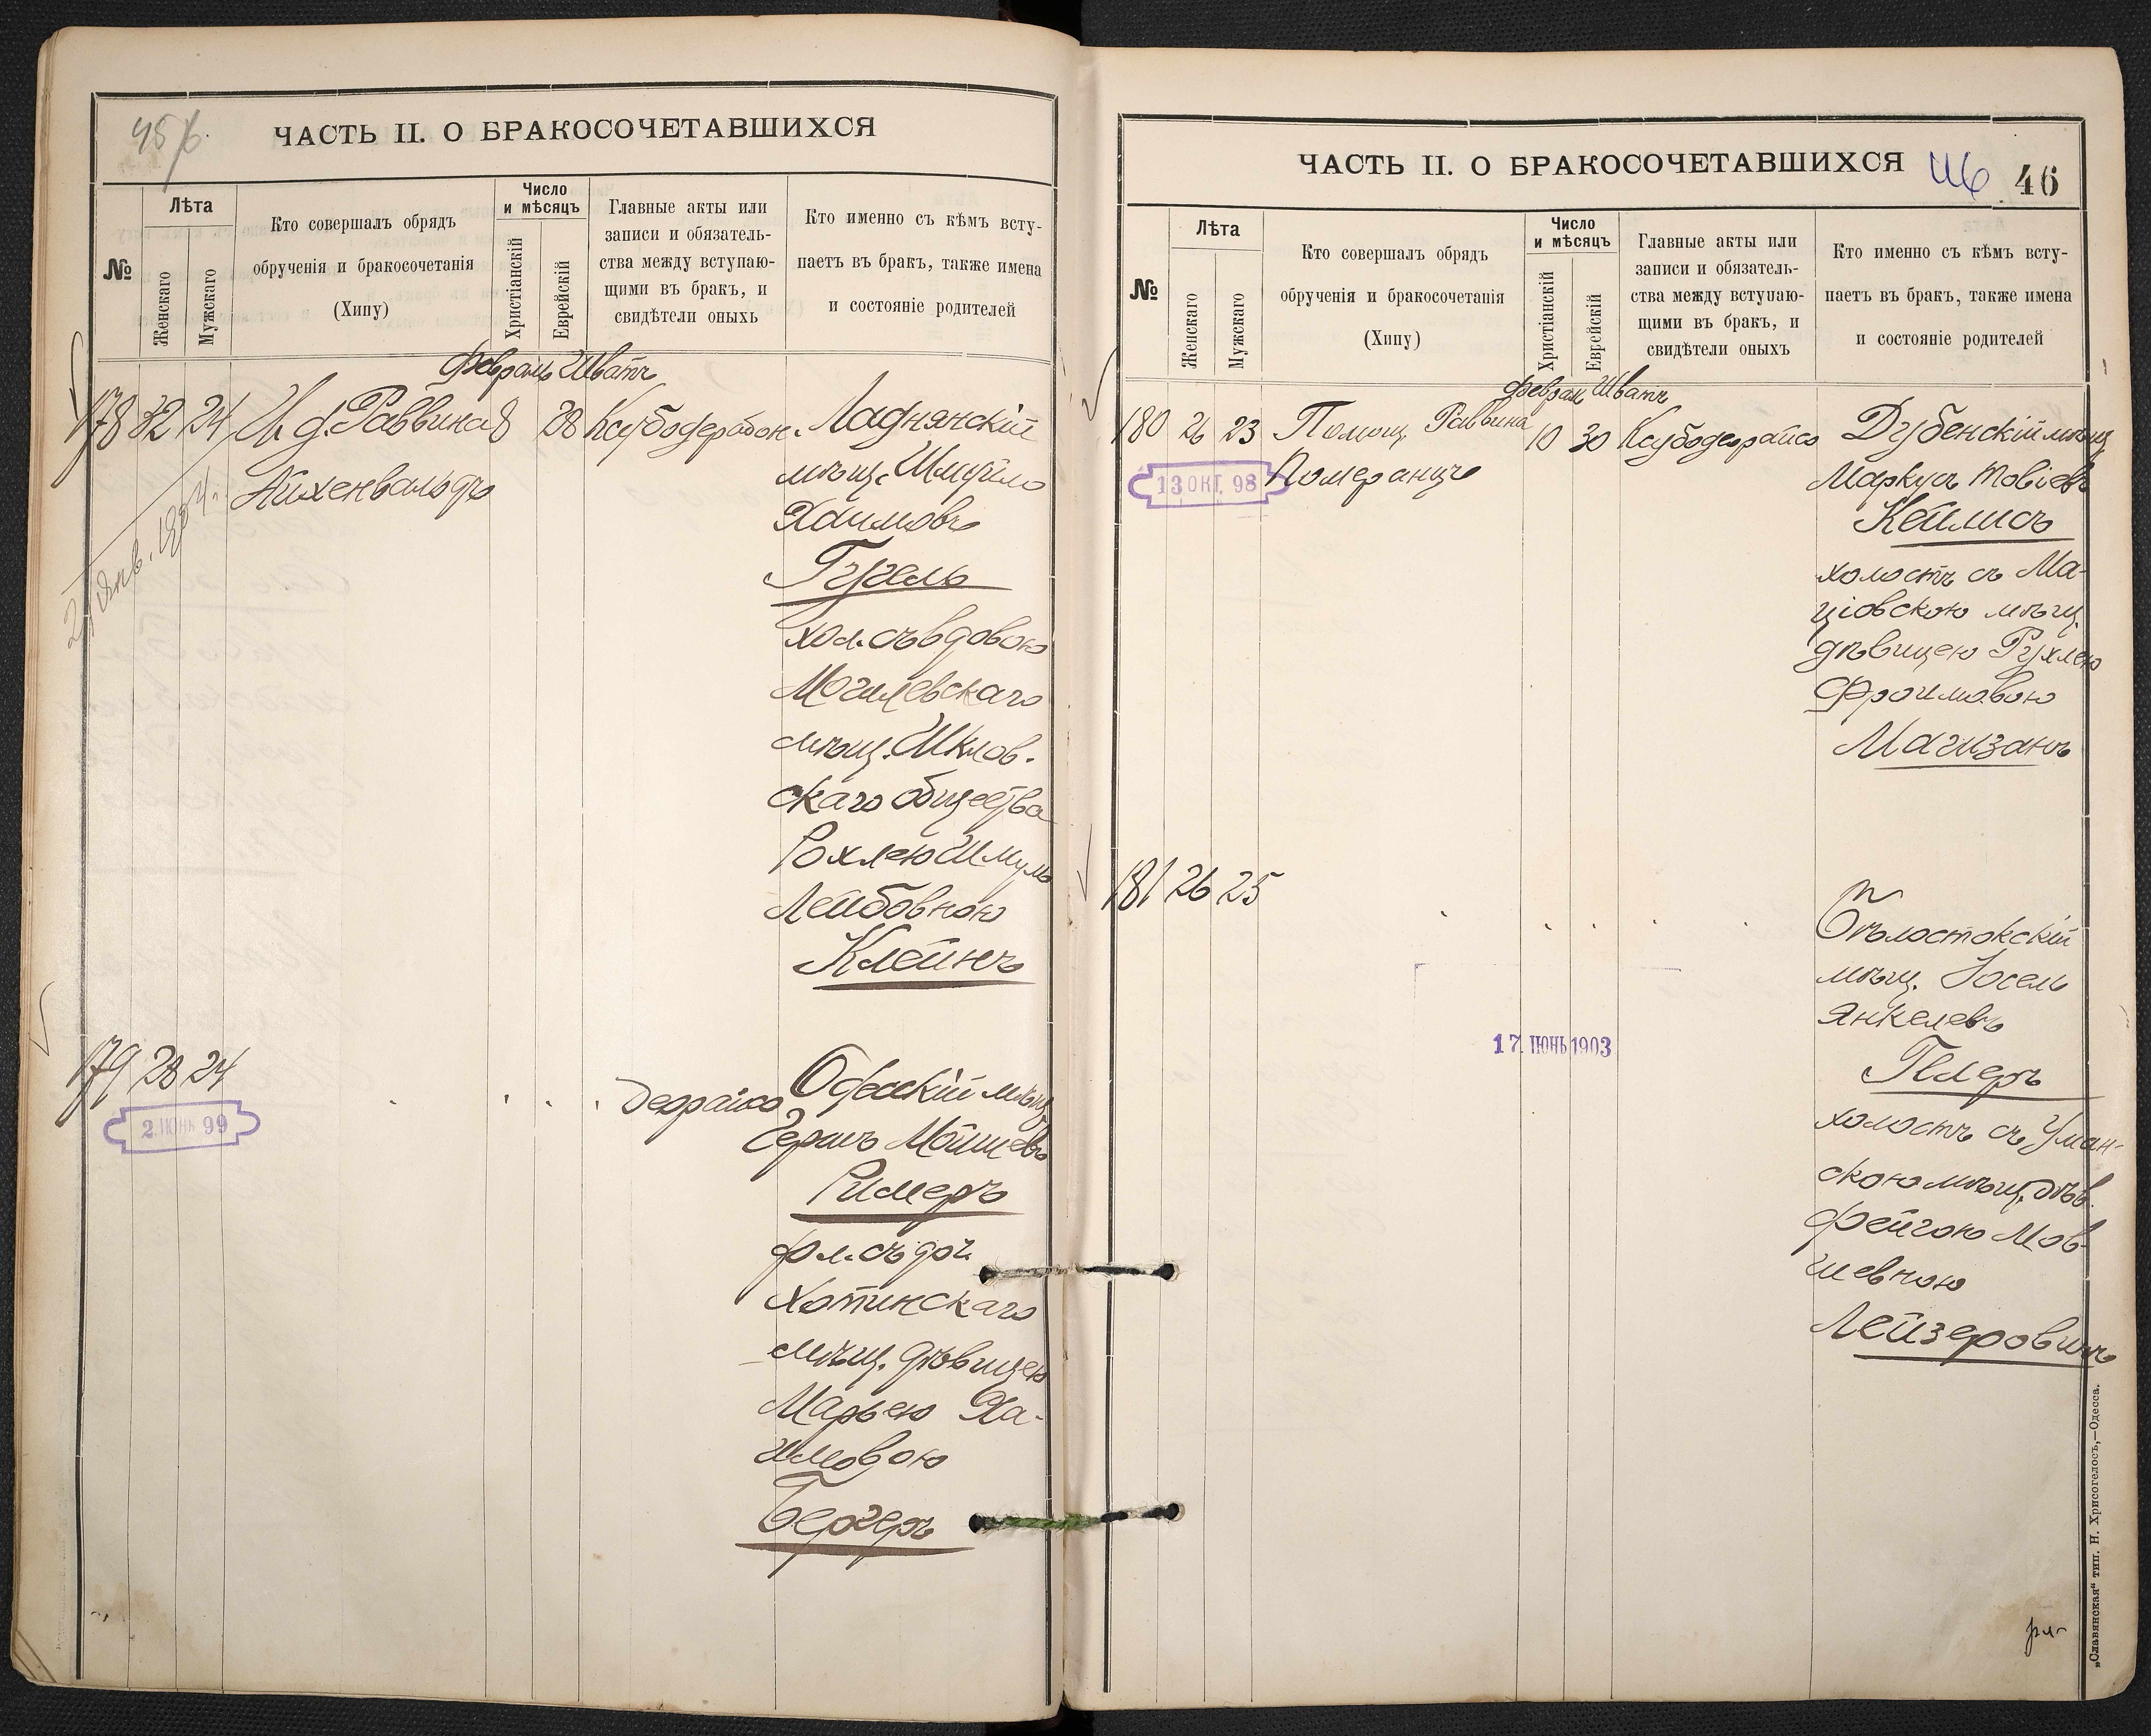 45 б.
ЧАСТЬ II. О БРАКОСОЧЕТАВШИХСЯ
№
Лѣта
Женскаго
Мужскаго
Кто совершалъ обрядъ
обрученія и бракосочетанія
(Хипу)
Число
и мѣсяцъ
Христіанскій
Еврейскій
Главные акты или
записи и обязатель-
ства между вступаю-
щими въ бракъ, и
свидѣтели оныхъ
Кто именно съ кѣмъ всту-
паетъ въ бракъ, также имена
и состояніе родителей
Февраль Шватъ
178 32 24 И. д. Раввина 8 28 Ксубо
Айхенвальдъ
Ладнянскій
мѣщ. Шмуйло
Хаимовъ
Гугель
хол. съ вдовою
Могилевскаго
мѣщ. Шклов-
скаго общества
Рохлею Шмуль
Лейбовною
Клейнъ
179 28 24
2 ИЮНЬ 99
деорайсо Одесскій мѣщ.
Гершъ Мойшевъ
Ример
съ доч.
Хотинскаго
мѣщ. дѣвицею
Марьею Ха-
имовою
Бергеръ
ЧАСТЬ II. О БРАКОСОЧЕТАВШИХСЯ
46
46
№
Лѣта
Женскаго
Мужскаго
Кто совершалъ обрядъ
обрученія и бракосочетанія
(Хипу)
Число
и мѣсяцъ
Христіанскій
Еврейскій
Главные акты или
записи и обязатель-
ства между вступаю-
щими въ бракъ, и
свидѣтели оныхъ
Кто именно съ кѣмъ всту-
паетъ въ бракъ, также имена
и состояніе родителей
Февраль Шватъ
180 26 23 Помощ. Раввина 10 30 Ксубодеорайсо
Померанцъ
13 ОКТ. 98
Дубенскій мѣщ.
Маркусъ Товіевъ
Кейлисъ
холостъ съ Ма-
ціовскою мѣщ.
дѣвицею Рухлею
Фроимовою
Магизанъ
181 26 25
Бѣлостокскій
мѣщ. Іосель
Янкелевъ
17 ИЮНЬ 1903
холостъ съ Уман-
скою мѣщ. дѣв.
Фейгою Мов-
шевною
Лейзеровичъ
„Славянская“ тип. Н. Хрисогелосъ,—Одесса.